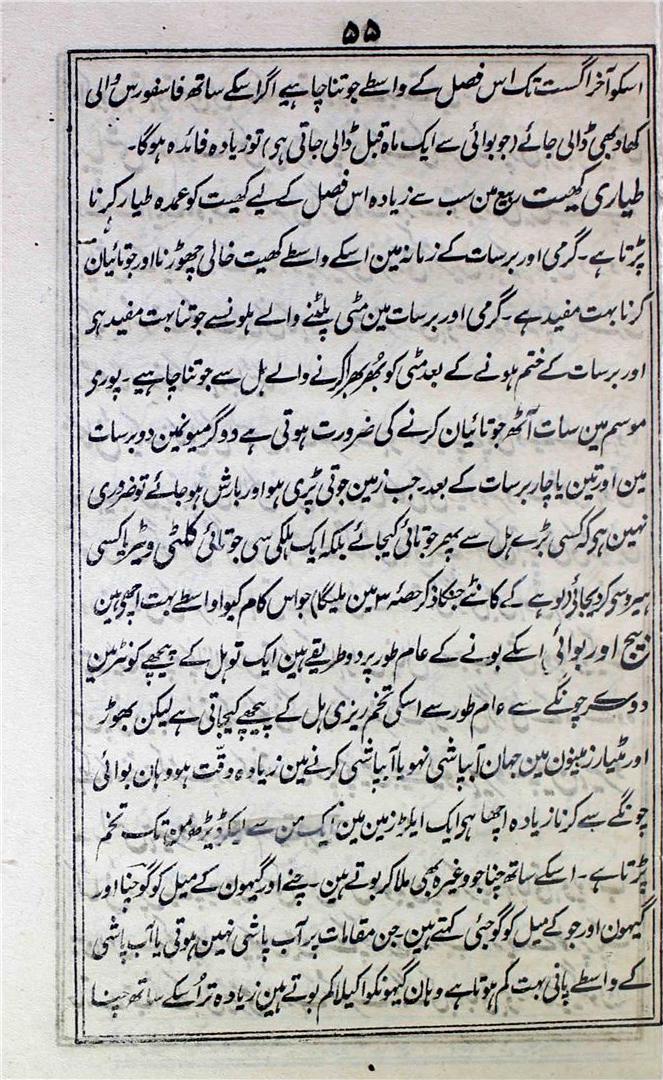 ۵۵
اسکو آخر اگست تک اس فصل کے واسطے جوتنا چاہیے اگر اسکے ساتھ فاسفورس والی
کھاد بھی ڈالی جائے (جو بوائی سے ایک ماہ قبل ڈالی جاتی ہی) تو زیادہ فائدہ ہوگا۔
طیاری کھیت ربیع مین سب سے زیادہ اس فصل کے لیے کھیت کو عمدہ طیار کرنا
پڑتا ہے۔ گرمی اور برسات کے زمانہ مین اسکے واسطے کھیت خالی چھوڑنا اور جوتائیان
کرنا بہت مفید ہے۔ گرمی اور برسات مین مٹی پلٹنے والے ہلونسے جوتنا بہت مفید ہی
اور برسات کے ختم ہونے کے بعد مٹی کو بھربھرا کرنے والے ہل سے جوتنا چاہیے۔ پوری
موسم مین سات آٹھ جوتائیان کرنے کی ضرورت ہوتی ہے دو گرمیونمین دو برسات
مین اور تین یا چار برسات کے بعد۔ جب زمین جوتی پڑی ہو اور بارش ہو جائے تو ضروری
نہین ہی کہ کسی بڑے ہل سے پھر جوتائی کیجائے بلکہ ایک ہلکی سی جوتائی کلٹی ویٹر یا کسی
ہیرو سی کر دیجائے (لوہے کے کانٹے جنکا ذکر حصہ ۳ مین ملیگا) جو اس کام کیواواسطے بہت اچھی ہین
(بیج اور بوائی) اسکے بونے کے عام طور پر دو طریقے ہین ایک تو ہل کے پیچھے کونڑ مین
دوسرے چونگے سے عام طور سے اسکی تخم ریزی ہل کے پیچھے کیجاتی ہے لیکن بھوڑ
اور مٹیار زمینون مین جہان آبپاشی نہو یا آبپاشی کرنے مین زیادہ دقت ہو وہان بوائی
چونگے سے کرنا زیادہ اچھا ہی ایک ایکڑ زمین مین ایک من سے لیکر ڈیڑھ من تک تخم
پڑتا ہے۔ اسکے ساتھ چنا جو وغیرہ بھی ملا کر بوتے ہین۔ چنے اور گیہون کے میل کو گوچنا اور
گیہون اور جو کے میل کو گوجئی کہتے ہین۔ جن مقامات پر آب پاشی نہین ہوتی یا آب پاشی
کے واسطے پانی بہت کم ہوتا ہے وہان گیہونکو اکیلا کم بوتے ہین زیادہ تر اُسکے ساتھ چنا